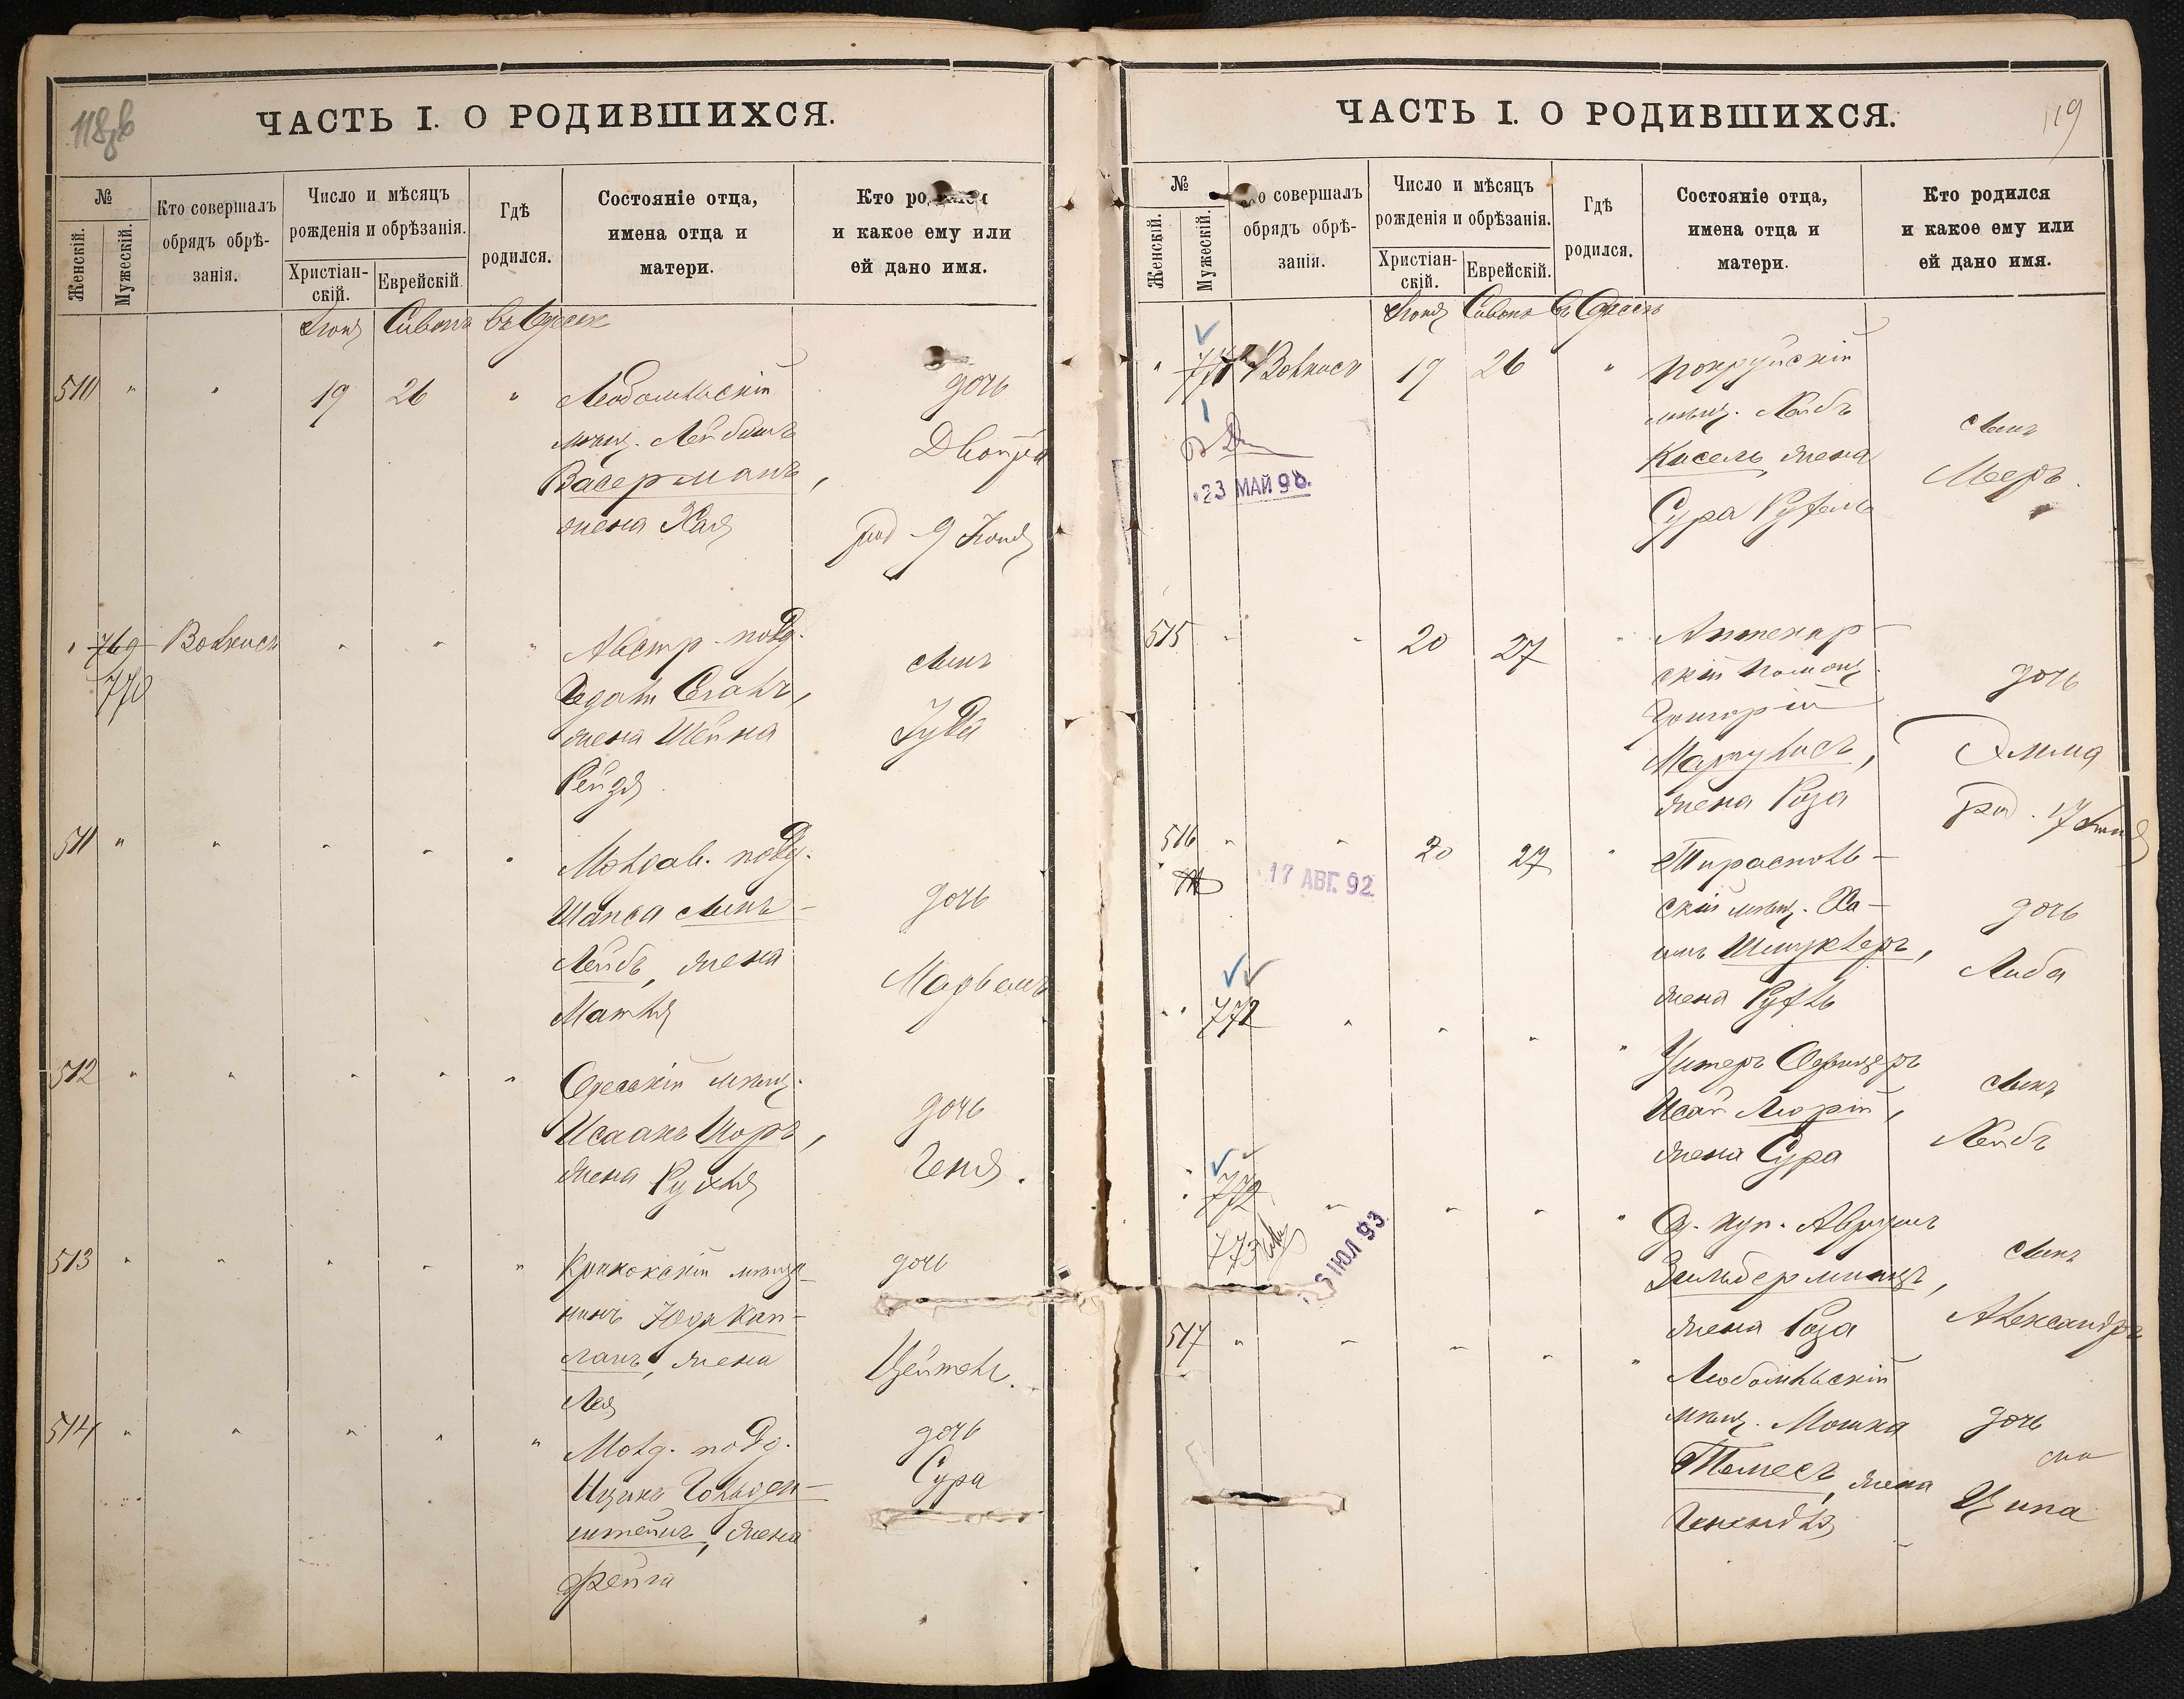 118об
ЧАСТЬ I. О РОДИВШИХСЯ.
№
Женскій.
Мужескій.
Кто совершалъ
обрядъ обрѣ-
занія.
Число и мѣсяцъ
рожденія и обрѣзанія.
Христіан-
скій.
Еврейскій.
Гдѣ
родился.
Состояніе отца,
имена отца и
матери.
Кто родился
и какое ему или
ей дано имя.
Іюня Сивонъ въ Одессѣ
510 " " 19 26 "
мѣщ. Лейбишъ
Васерманъ,
жена Хая
дочь
Двойра
род 9 Іюня
" 769 "  "  "
770
Австр. подд.
жена Шейна
Рейзя
сынъ
Іуда
511 " " " " "
Молдав. подд.
Шапса сынъ
Лейбъ, жена
Матля
дочь
512 " " " " "
Одесскій мѣщ.
Исаакъ Шоръ,
жена Рухля
дочь
Геня.
513 " " " " "
мѣща-
нинъ Юда Кап-
ланъ, жена
Лея
дочь
Цейтель.
514 " " " " "
Молд. подд.
Ицикъ Гольден-
штейнъ, жена
Фейга
дочь
Сура
119
ЧАСТЬ I. О РОДИВШИХСЯ.
№
Женскій.
Мужескій.
Кто совершалъ
обрядъ обрѣ-
занія.
Число и мѣсяцъ
рожденія и обрѣзанія.
Христіан-
скій.
Еврейскій.
Гдѣ
родился.
Состояніе отца,
имена отца и
матери.
Кто родился
и какое ему или
ей дано имя.
Іюня Сивонъ въ Одессѣ
" 771 19 26 "
23 МАЙ 98.
мѣщ. Лейбъ
Кисель, жена
Сура Рухель
сынъ
Мееръ.
515 " " 20 27 "
Аптекар-
скій помощ.
Григорій
жена Роза
дочь
Эмма
род. 17 Іюня
516 " " 20 27 "
17 АВГ. 92
Тирасполь-
скій мѣщ. Ха-
имъ Шмуклеръ,
жена Рухль
дочь
Либа
" 772 " " " "
Исай Люрій,
жена Сура
сынъ
Лейбъ
" 772 " " " "
773
5 ІЮЛ 93
О. куп. Аврумъ
Зильберминцъ,
жена Роза
сынъ
Александръ
517 " " " " "
Любомльскій
мѣщ. Мошка
жена
Генендля
дочь
Ципа